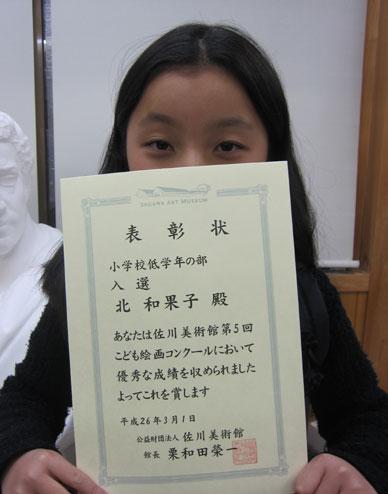 SAGAWA ART MUSEUM
表彰状
小学校低学年の部
入選
北 和果子 殿
あなたは佐川美術館第5回
こども絵画コンクールにおいて
優秀な成績を収められました
よってこれを賞します
平成26年3月1日
公益財団法人 佐川美術館
館長 栗和田榮一